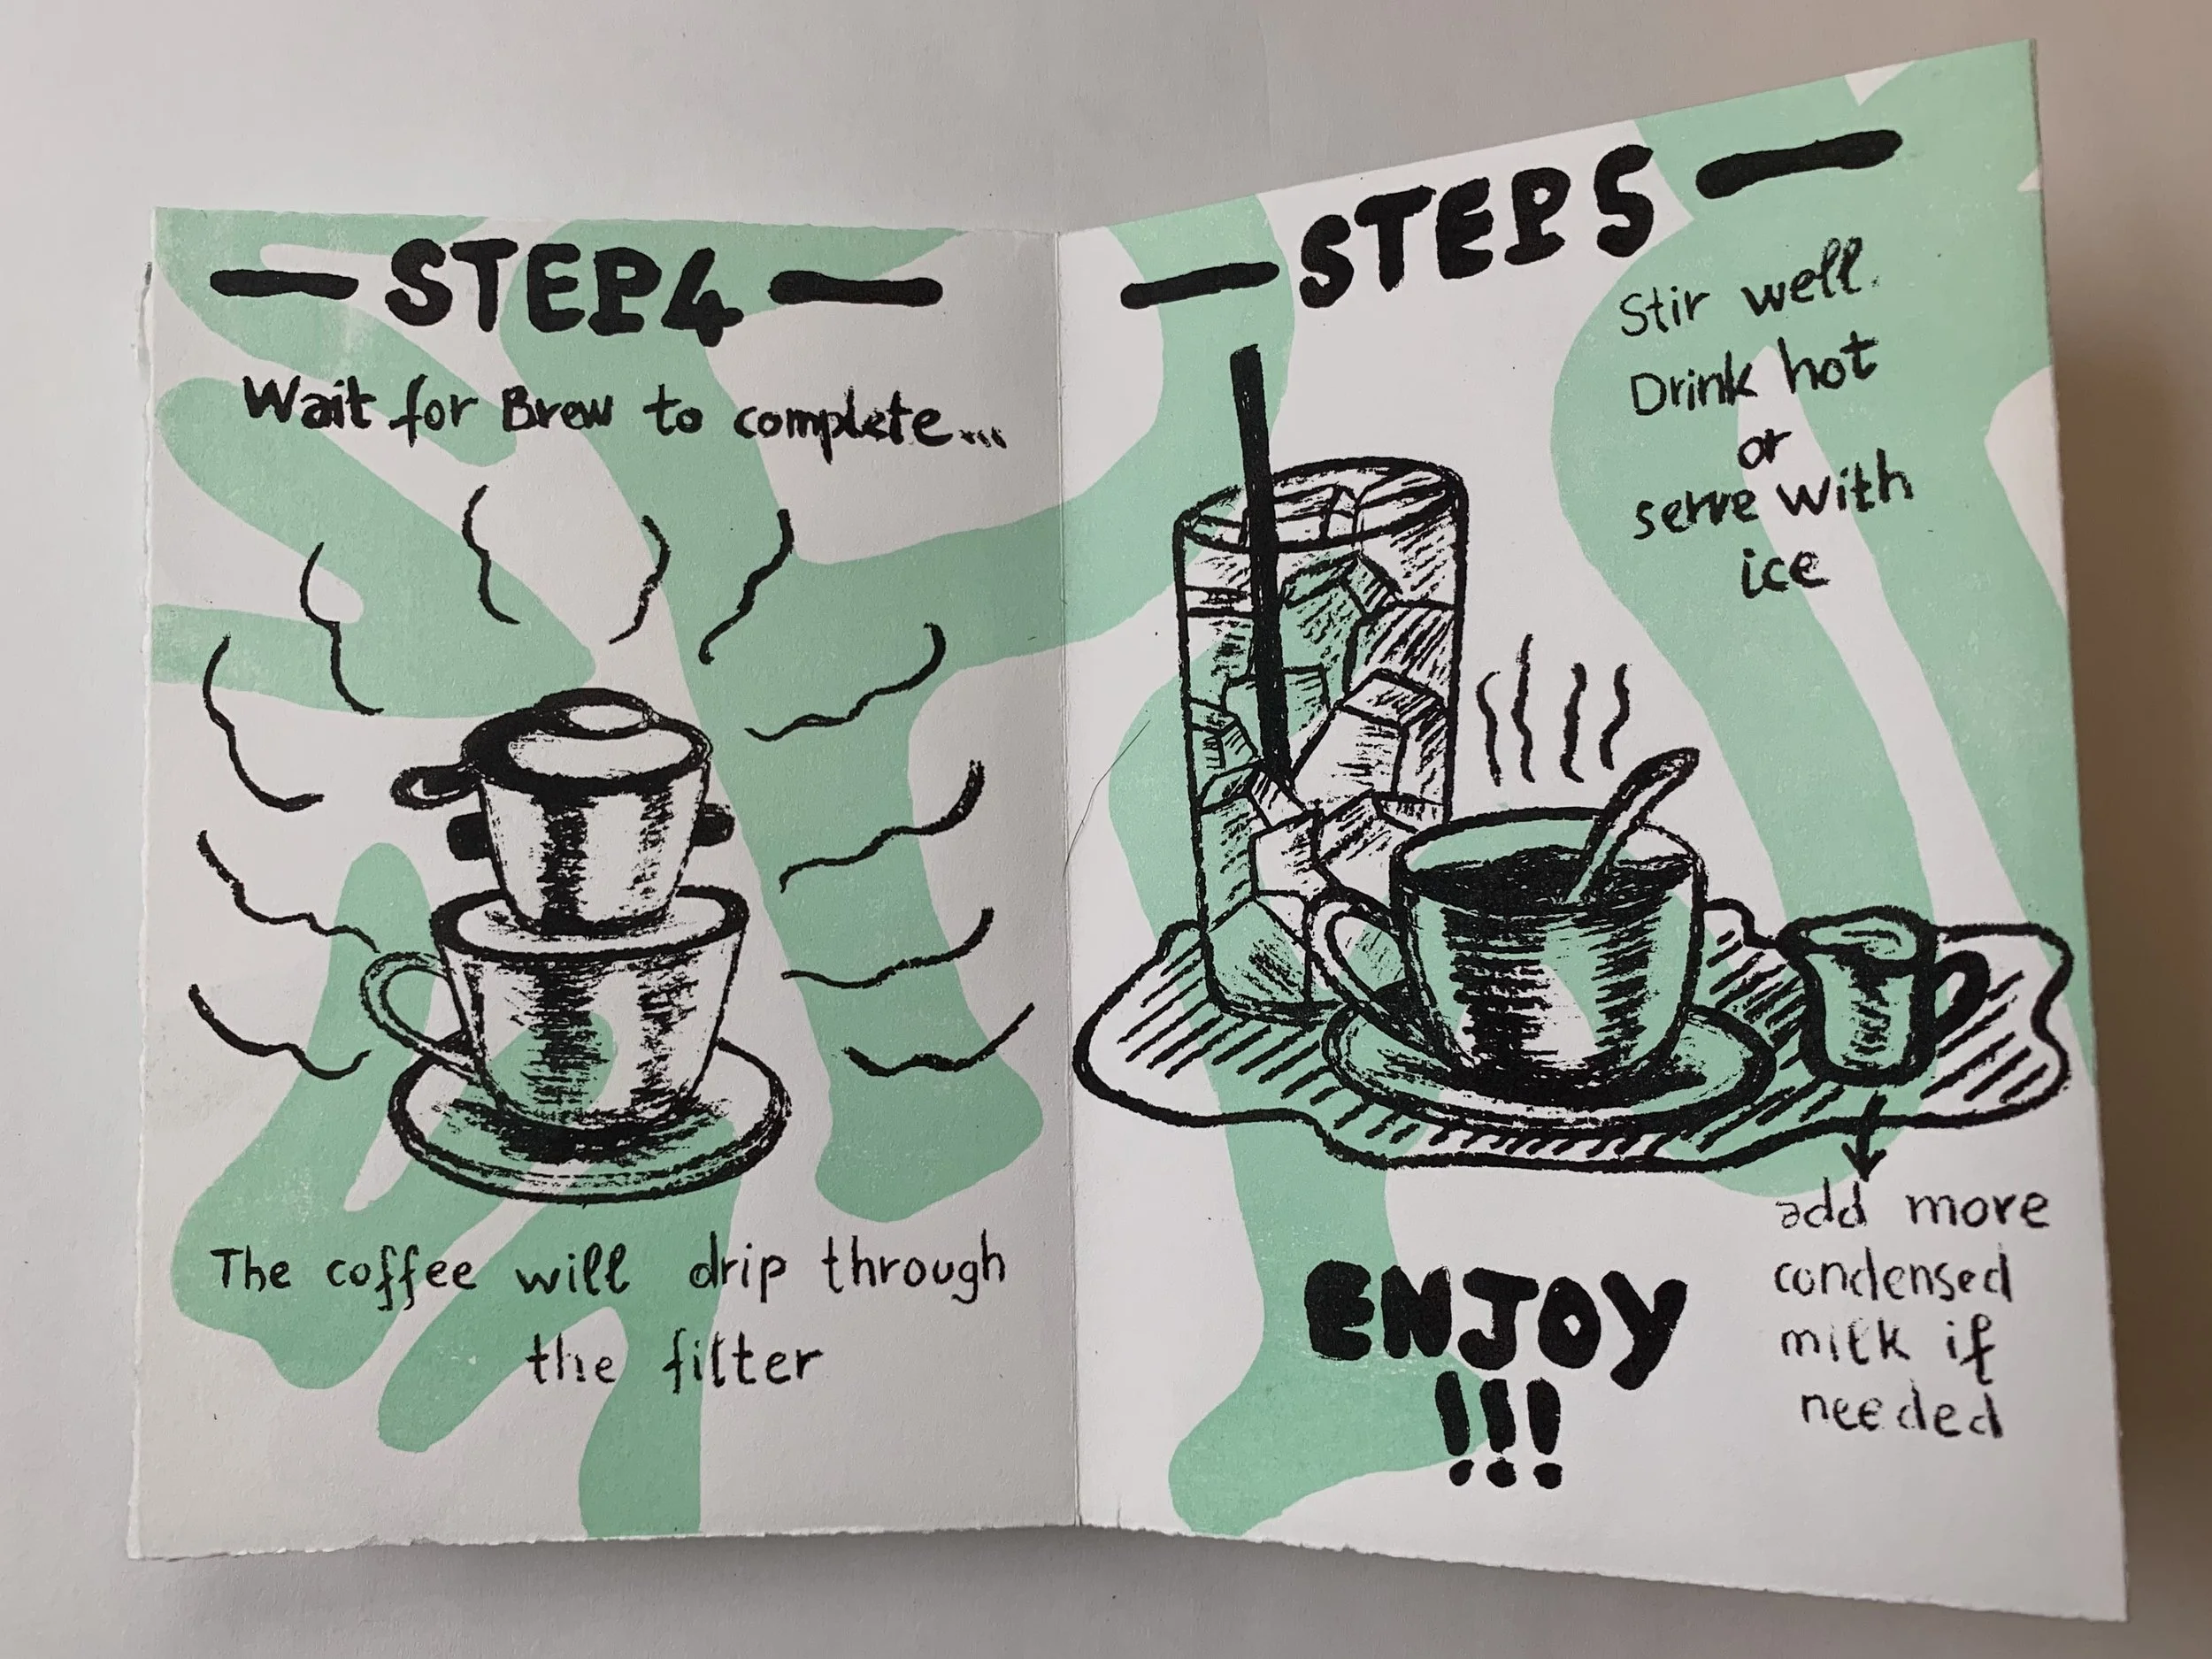 STEP 4
Wait for Brew to complete...
The coffee will drip through
the filter
STEP 5
Stir well.
Drink hot
or
serve with
ice
add more
condensed
milk if
needed
ENJOY
!!!